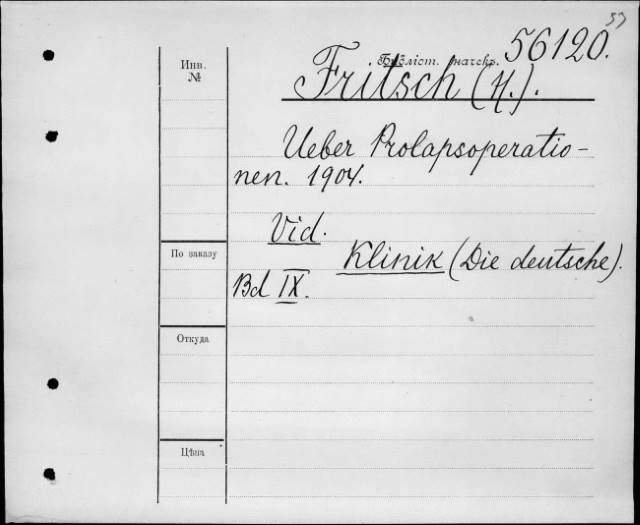 53
Библіот. значекъ. 56120.
Инв.
№
Fritsch (H.).
Ueber Prolapsoperatio-
nen. 1904.
Vid.
По заказу
Klinik (Die deutsche).
Bd IX.
Откуда
Цѣна